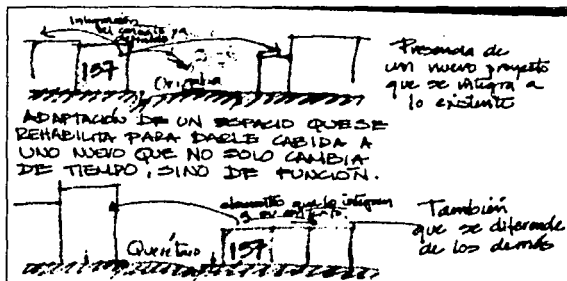 Integración
del conjunto ya
definido
137
Orizaba
Presencia de
un nuevo proyecto
que se integra a
lo existente
ADAPTACIÓN DE UN ESPACIO QUE SE
REHABILITA PARA DARLE CABIDA A
UNO NUEVO QUE NO SOLO CAMBIA
DE TIEMPO, SINO DE FUNCIÓN.
elementos que lo integran
a su entorno
Querétaro
137
También
que se diferencie
de los demás